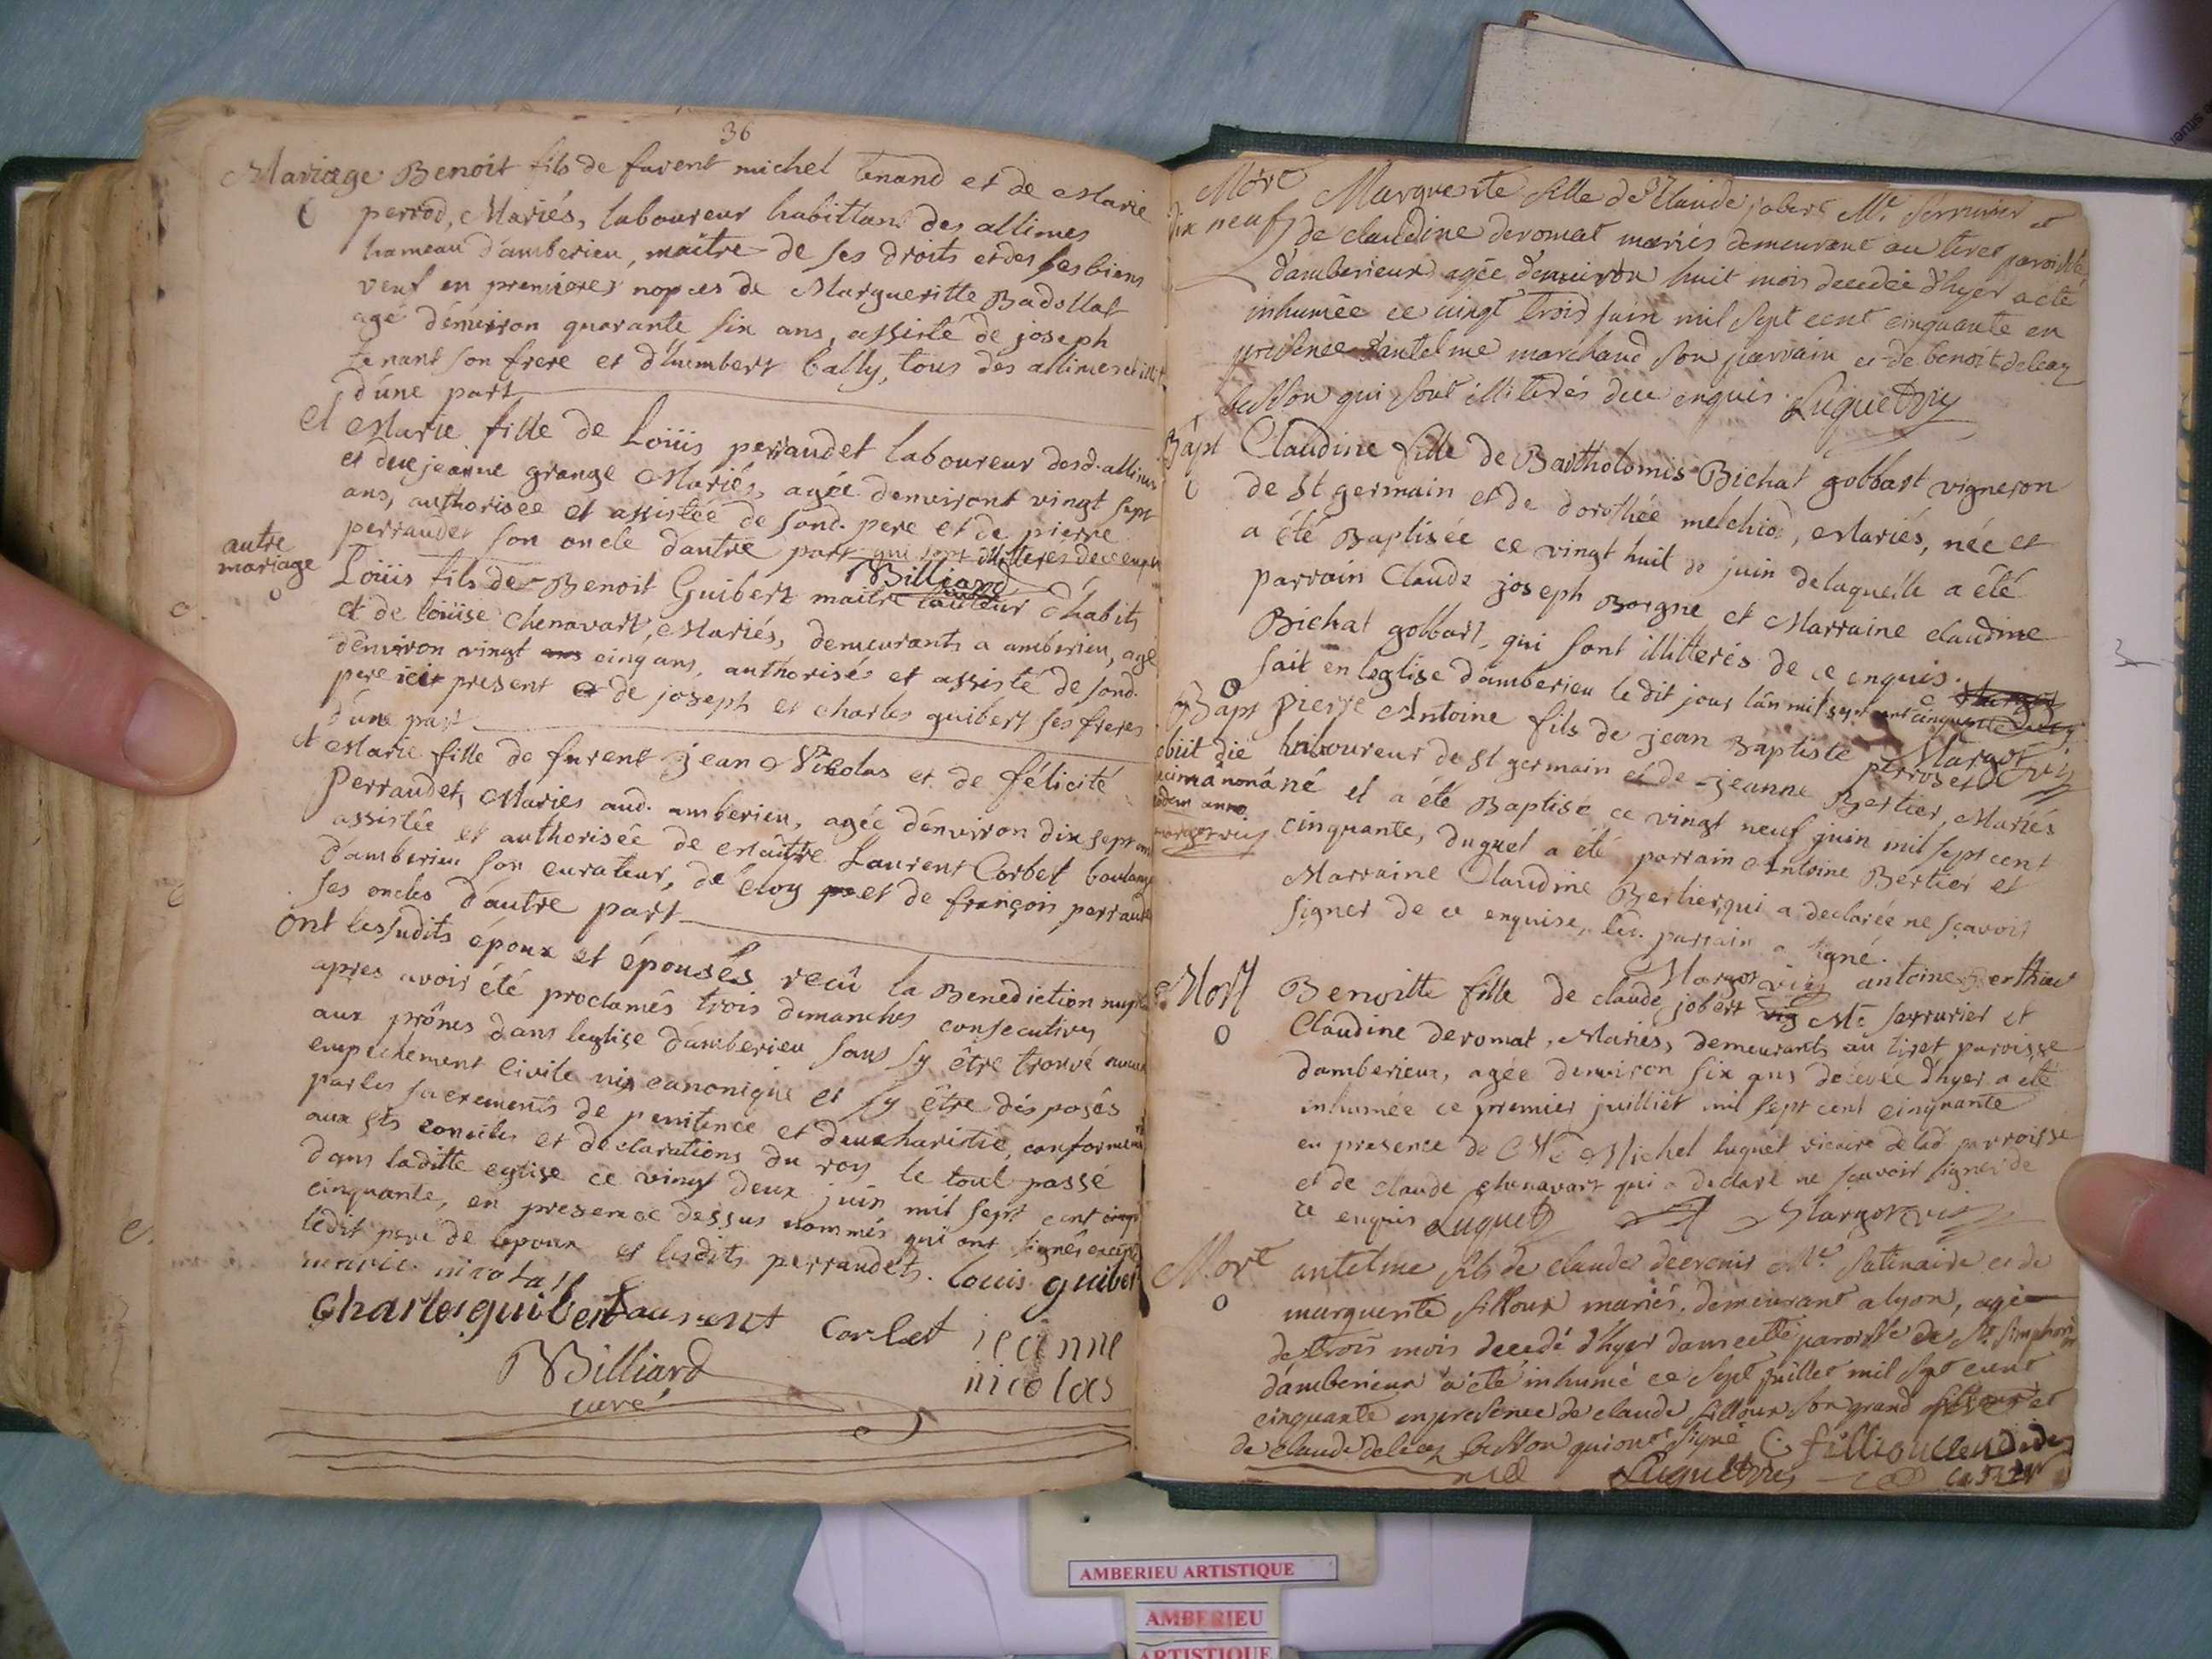 36
Mariage Benoit fils de furent michel tenand et de Marie
perrod, Mariés, laboureur habittant des allimes
hameau d'amberieu, maître de ses droits et des ses biens
veuf en premieres nopces de Margueritte Badollat
agé d'environ quarante six ans, assisté de joseph
tenant son frere et d'humbert bally, tous des allimes
d'une part
et Marie fille de Loüis perraudet laboureur desd. allimes
et de jeanne grange Mariés, agée d'environt vingt sept
ans, authorisée et assistée de sond. pere et de pierre
perraudet son oncle d'autre part qui sont illitteres de ce enquis
Billiard
autre
mariage
Loüis fils de Benoit Guibert maitre tailleur d'habits
et de loüise chenavart, Mariés, demeurants a amberieu, agé
d'environ vingt ans cinq ans, authorisé et assisté de sond.
pere icit present et de joseph et charles guibert ses freres
d'une part
et Marie fille de furent jean Nicolas et de félicité
Perraudet, Maries aud. amberieu, agée d'environ dix sept ans
assistée et authorisée de Maître Laurent Corbet boulanger
d'amberieu son curateur, de eloy et de françois perraudet
ses oncles d'autre part
ont lessudits époux et épousés recû la Benediction nuptiale
apres avoir été proclamés trois dimanches consecutives
aux prônes dans leglise d'amberieu sans sy être trouvé aucun
empechement civile ni canonique et sy être disposés
par les sacrements de penitence et d'eucharistie, conformement
aux sts conciles et declarations du roy le tout passé
dans laditte eglise ce vingt deux juin mil sept cent
cinquante, en presence dessus nommés qui ont signés excepté
ledit pere de lepoux et lesdits perraudets. Louis guibert
marie nicolas
Charles guibert Laurent Corbet jeanne
nicolas
Billiard
curé
37
Mort Marguerite fille de Claude jobert Me. serrurier et
dix neuf de claudine deromat mariés demeurant au tiret paroisse
d'amberieux agée d'environ huit mois decedée d'hyer a eté
inhumée ce vingt trois juin mil sept cent cinquante en
presence d'antelme marchand son parrain et de benoit deleaz
qui sont illiterés de ce enquis. Luguet vic
Bapt Claudine fille de Bartholomis Bichat gobbart vigneron
de St germain et de dorothée melchiod, Mariés, née et
a été Baptisée ce vingt huit de juin de laquelle a été
parrain Claude joseph Borgne et Marraine claudine
Bichat gobbart, qui sont illitterés de ce enquis.
fait en leglise d'amberieu le dit jour l'an mil sept cent cinquante
Margot vic
Bapt Pierre Antoine fils de jean Baptiste perroset
obiit die laboureur de St germain et de jeanne Bertier, Mariés
decima nonâ né et a été Baptisé ce vingt neuf juin mil sept cent
eodem anno cinquante, duquel a été parrain Antoine Bertier et
margot vic Marraine Claudine Bertier, qui a declarée ne sçavoir
signer de ce enquise, led. parrain a signé.
Margot vic antoine Berthier
Mort Benoitte fille de claude jobert Me serrurier et
Claudine deromat, Mariés, demeurants au tiret paroisse
d'amberieux, agée d'environ six ans decedée d'hyer a eté
inhumée ce premier juilliet mil sept cent cinquante
en presence de Me Michel luguet vicaire de lad parroisse
et de claude chenavart qui a declaré ne sçavoir signer de
ce enquis Luguet Margot vic
Mort antelme fils de claude decrenis Me. satinaire et de
marguerite filloux mariés, demeurant a lyon, agé
de trois mois decedé d'hyer dans cette paroisse de St. simphorien
d'amberieux a eté inhumé ce sept juillet mil sept cent
cinquante en presence de claude filloux son grand et
de claude deleaz qui ont signé C filliou claude de
Luguet vic
AMBERIEU ARTISTIQUE
AMBERIEU
ARTISTIQUE